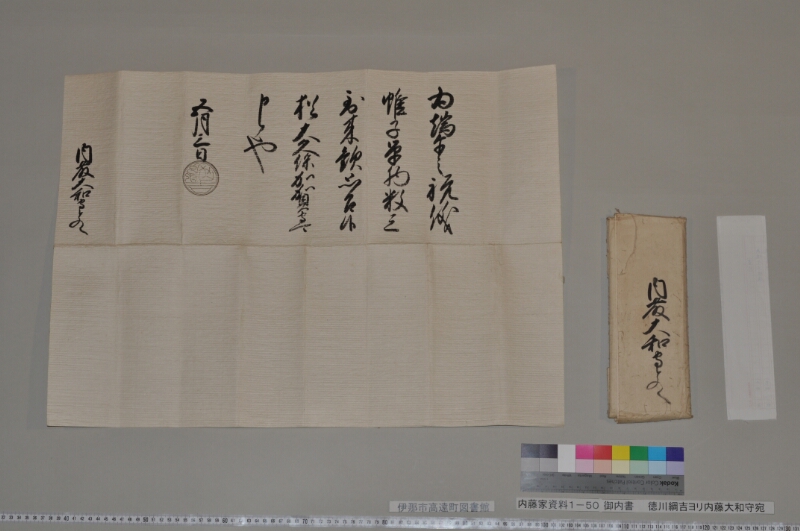 為端午之祝儀
帷子單物数三
到来歓思召候
猶大久保加賀守
可申候也
五月三日
内藤大和守とのへ
内藤大和守とのへ
伊那市高遠町図書館
内藤家資料1－50 御内書 徳川綱吉ヨリ内藤大和守宛
Kodak